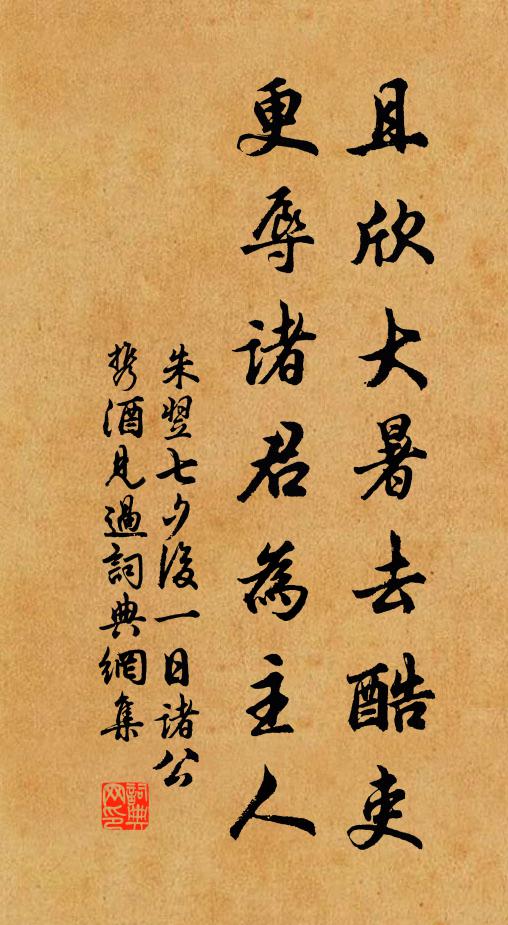 且欣大暑去酷吏
更辱諸君為主人
朱翌七夕後一日諸公
携酒見過詞典網集
詞典網印